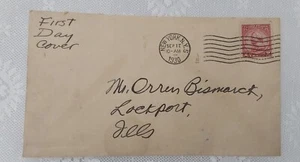 First
Day
Cover
NEW YORK, N.Y.
Mr. Orren Bismarck,
Lockport,
Ills